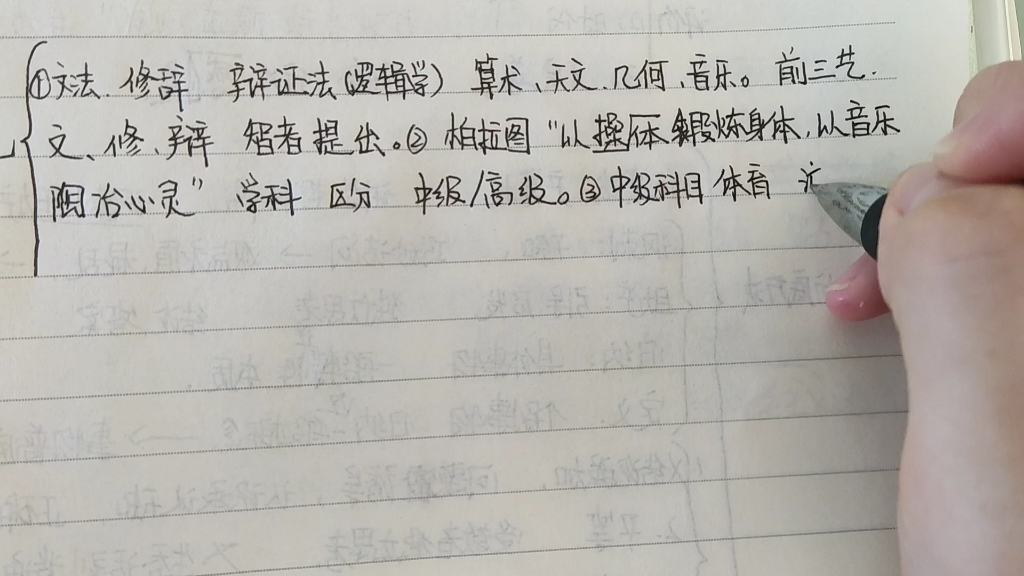 ①文法、修辞 辩证法(逻辑学) 算术、天文、几何、音乐。前三艺.
文、修、辩 智者提出。② 柏拉图 "以操体锻炼身体,以音乐
陶冶心灵" 学科 区分 中级/高级。③中级科目 体育